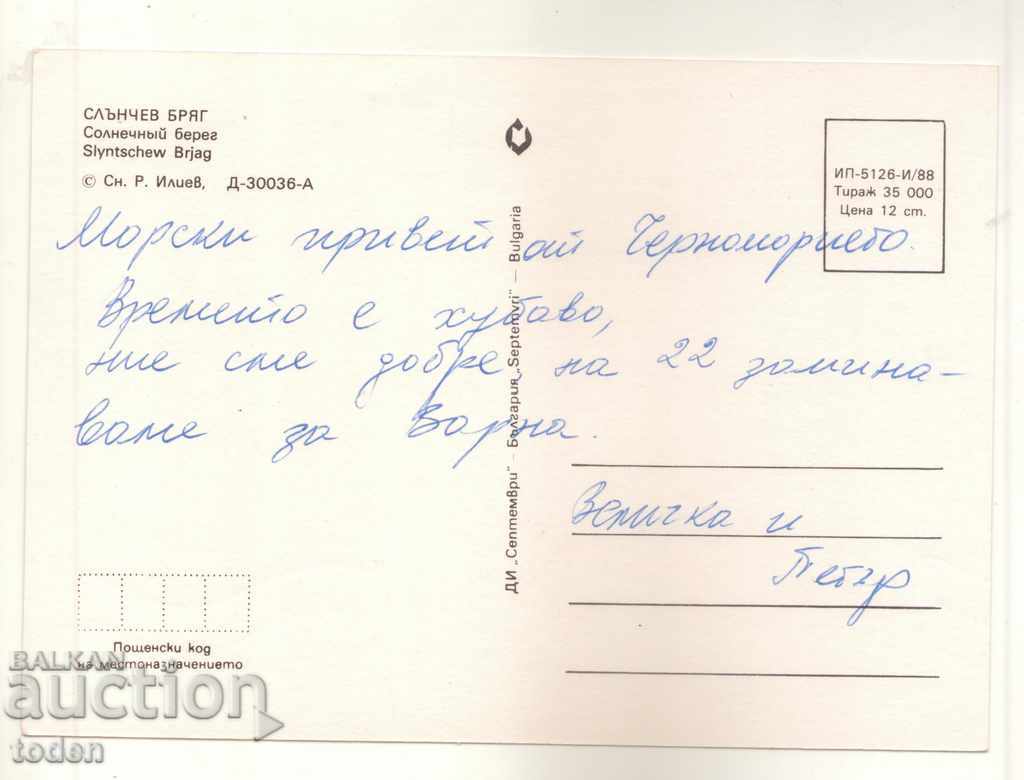 СЛЪНЧЕВ БРЯГ
Солнечный берег
Slyntschew Brjag
© Сн. Р. Илиев, Д-30036-А
ИП-5126-И/88
Тираж 35 000
Цена 12 ст.
Морски привет от Черноморието.
Времето е хубаво,
ние сме добре на 22 замина-
ваме за Варна.
ДИ „Септември" — България „Septemvri" — Bulgaria
Величка и
Петър
Пощенски код
на местоназначението
BALKAN
auction
toden